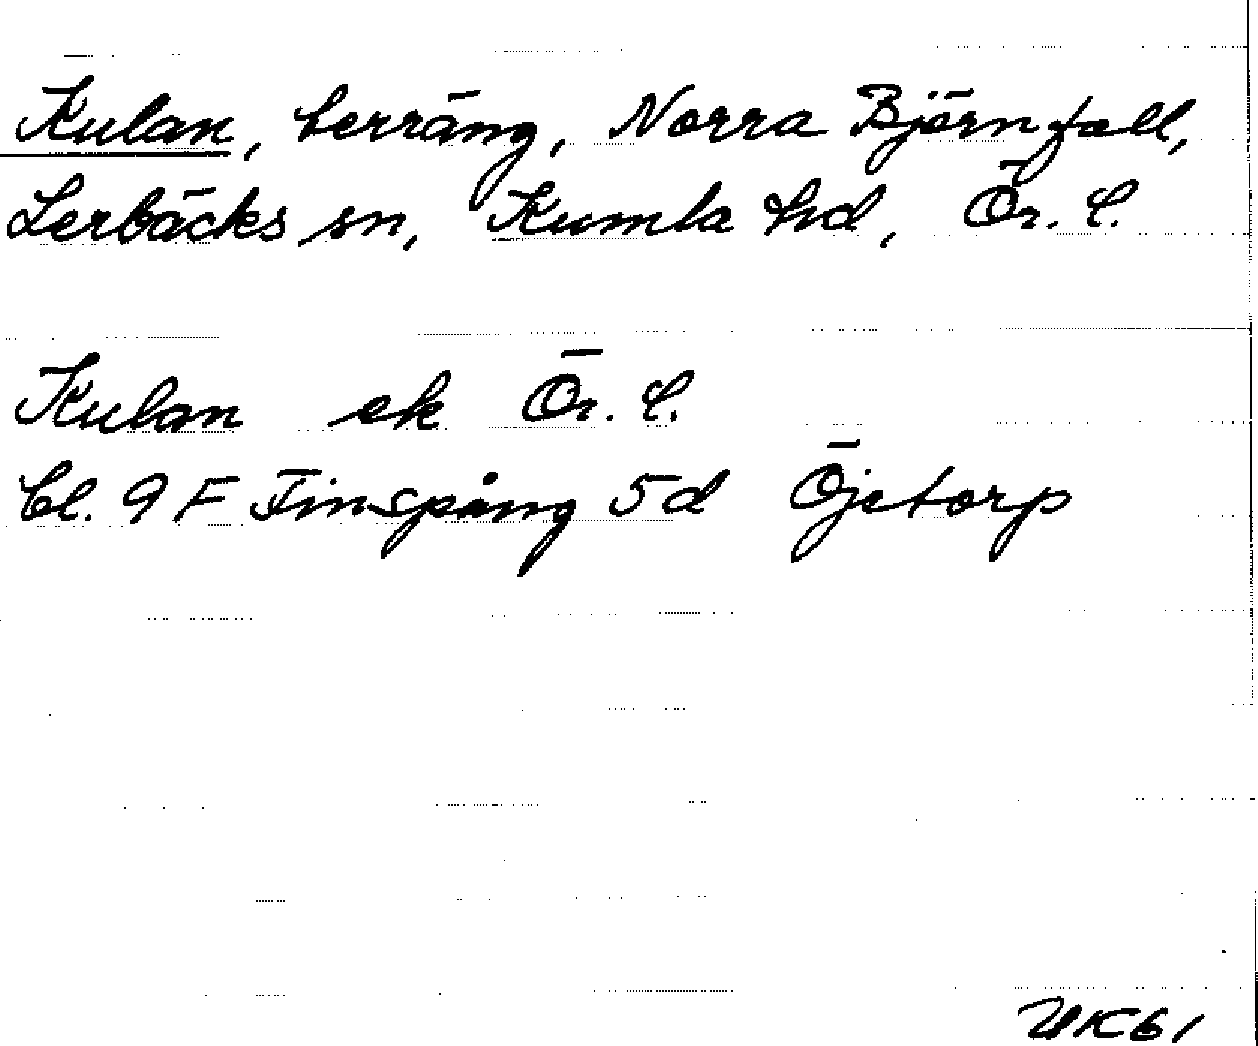 Kulan, terräng, Norra Björnfall,
Lerbäcks sn, Kumla hd, Ör. l.
Kulan ek Ör. l.
bl. 9 F Finspång 5d Öjetorp
UK61